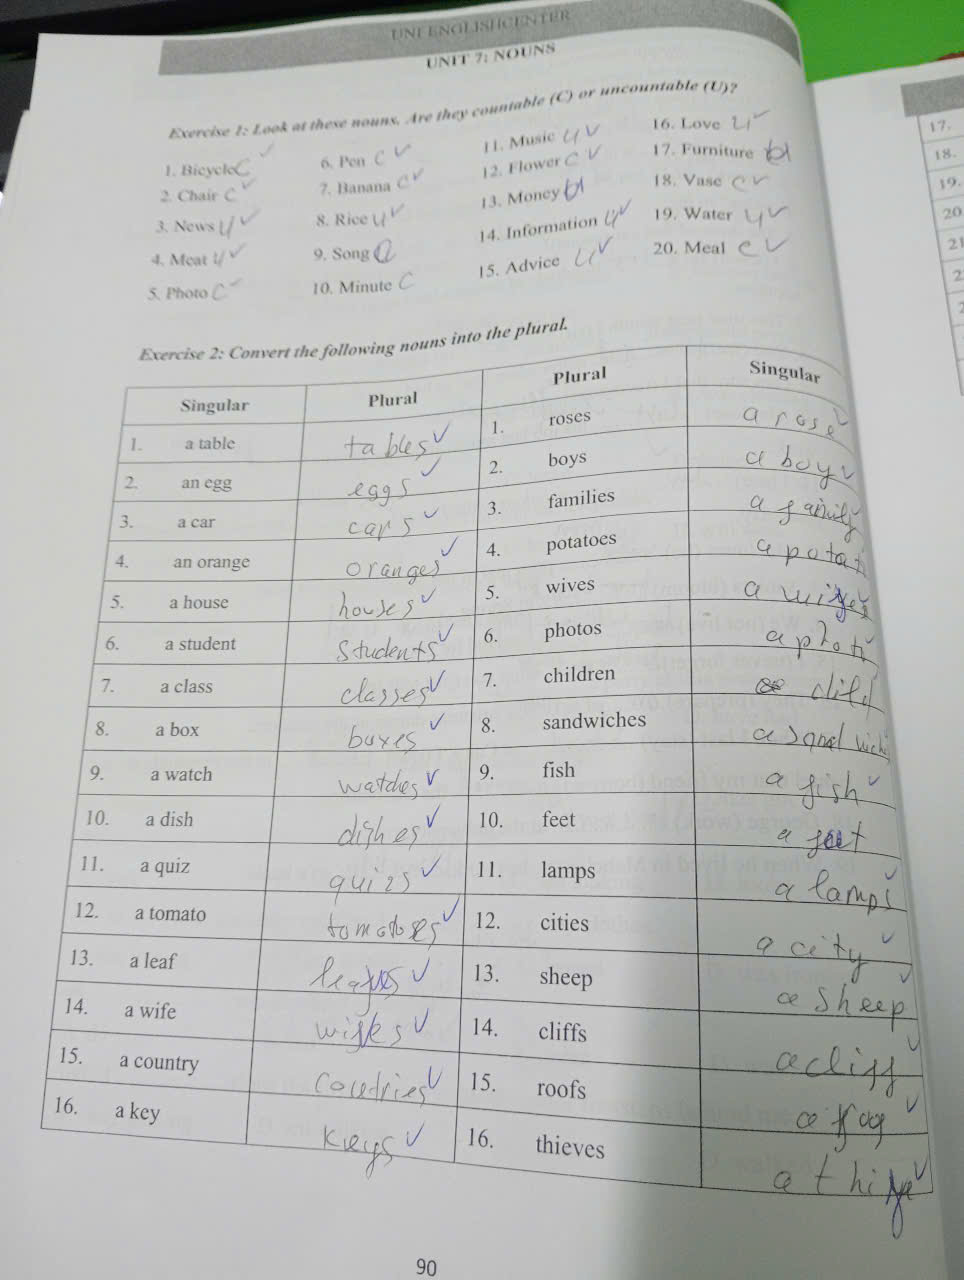 UNI ENGLISHCENTER
UNIT 7: NOUNS
Exercise 1: Look at these nouns. Are they countable (C) or uncountable (U)?
1. Bicycle C
2. Chair C
3. News U
4. Meat U
5. Photo C
6. Pen C
7. Banana C
8. Rice U
9. Song
10. Minute C
11. Music U
12. Flower C
13. Money
14. Information U
15. Advice U
16. Love U
17. Furniture
18. Vase C
19. Water U
20. Meal C
Exercise 2: Convert the following nouns into the plural.
Singular Plural Plural Singular
1. a table tables 1. roses a rose
2. an egg eggs 2. boys a boy
3. a car cars 3. families a family
4. an orange oranges 4. potatoes a potat
5. a house houses 5. wives a
6. a student students 6. photos a
7. a class classes 7. children
8. a box boxes 8. sandwiches a
9. a watch watches 9. fish a fish
10. a dish dishes 10. feet a
11. a quiz 11. lamps a lamps
12. a tomato tomatoes 12. cities a city
13. a leaf leaves 13. sheep a sheep
14. a wife wives 14. cliffs a cliff
15. a country 15. roofs a
16. a key keys 16. thieves a
90
17.
18.
19.
20
21